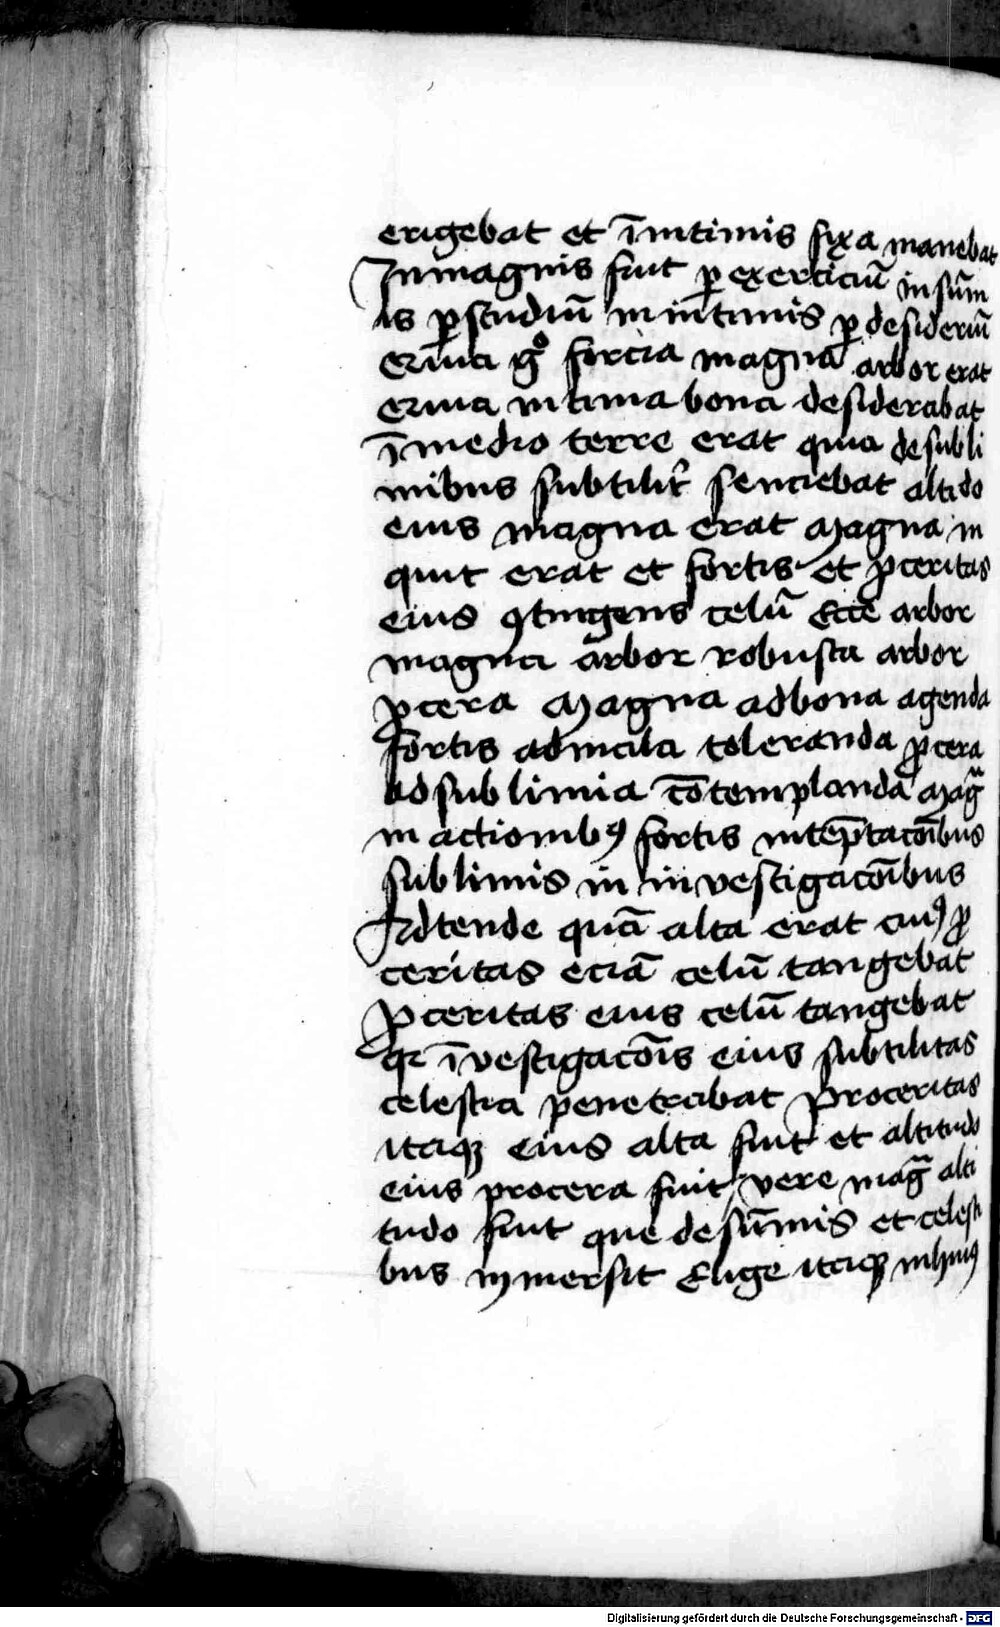 erigebat et ī intimis fixa manebat
In magnis fuit ꝑ exerciciū in sūm
is ꝑ studiū in intimis ꝑ desideriū
Erat gͦ forcia magna arbor erat
erat intima bona desiderabat
ī medio terre erat quia de subli
mibus subtilit᷑ senciebat altido
eius magna erat Magna in
quit erat et fortis et ꝓceritas
eius ꝯtingens celū Ecce arbor
magna arbor robusta arbor
ꝓcera Magna ad bona agenda
fortis ad mala toleranda ꝓcera
ad sublimia cōtemplanda Mag̃
in actionibꝰ fortis in tēptacōibus
sublimis in investigacōibus
Adtende quā alta erat cuiꝰ ꝓ
ceritas eciā celū tangebat
Ꝓceritas eius celū tangebat
qr̄ īvestigacōis eius subtilitas
celestia penetrabat Proceritas
itaqꝫ eius alta fuit et altitudo
eius procera fuit / vere mag̃ alti
tudo fuit que de sūmis et celesti
bus inmersit Elige itaqꝫ